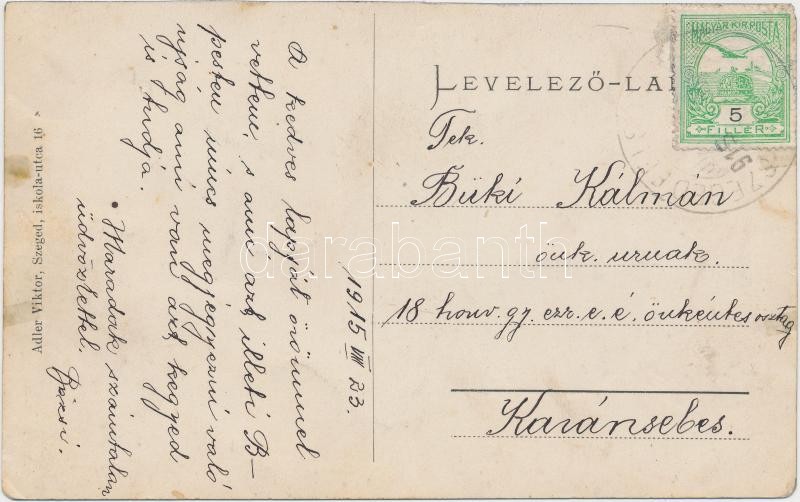 A kedves lapját örömmel
vettem, s ami azt illeti B–
pesten nincs megjegyezni való
ujság ami van azt kegyed
is tudja.
• Maradok számtalan
üdvözlettel. Bözsi.
1915 VIII 23.
Adler Viktor, Szeged, iskola-utca 16
LEVELEZŐ-LAP
MAGYAR KIR. POSTA
5
FILLÉR
Tek.
Büki Kálmán
önk. urnak.
18 honv. gy. ezr. e. é. önkéntes osztag
Karánsebes.
darabanth